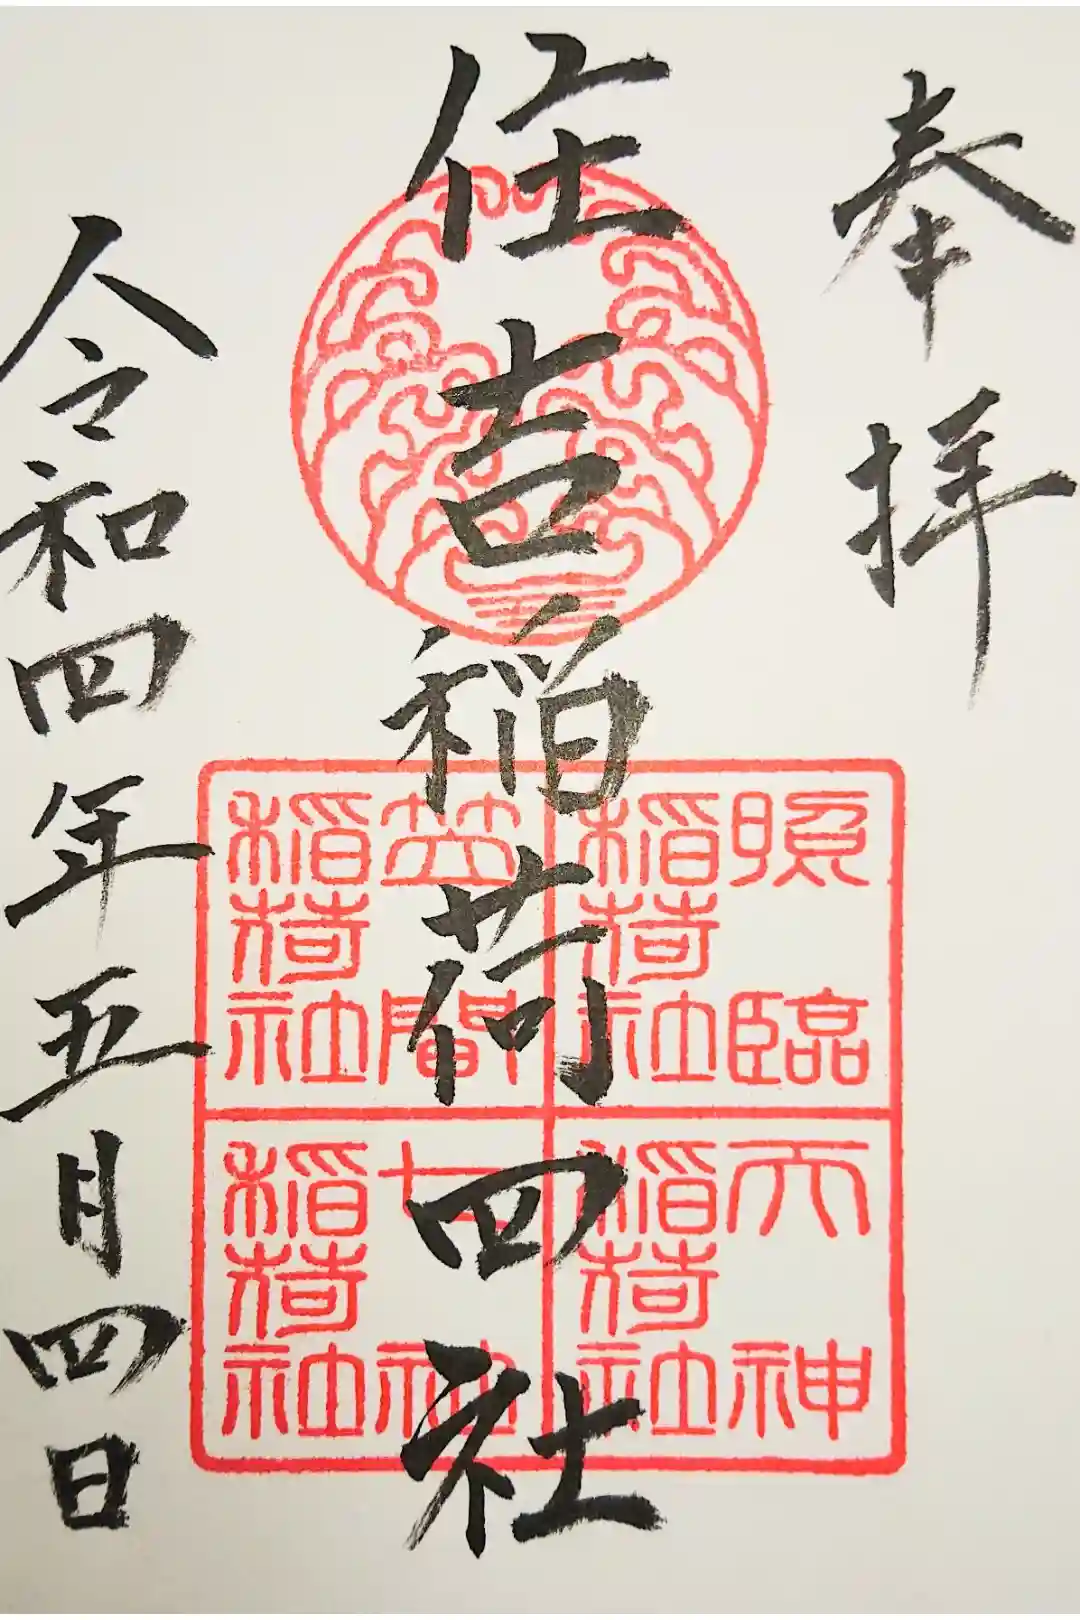 奉拝
住吉稲荷四社
令和四年五月四日
照臨
稲荷社
天神
稲荷社
笠間
稲荷社
稲荷社